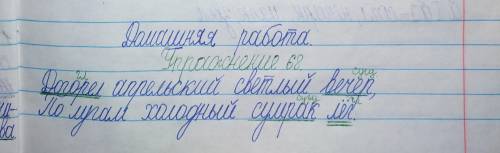 Домашняя работа.
Упражнение 68.
гл сущ
Догорел апрельский светлый вечер,
сущ гл
По лугам холодный сумрак лёг.
ва